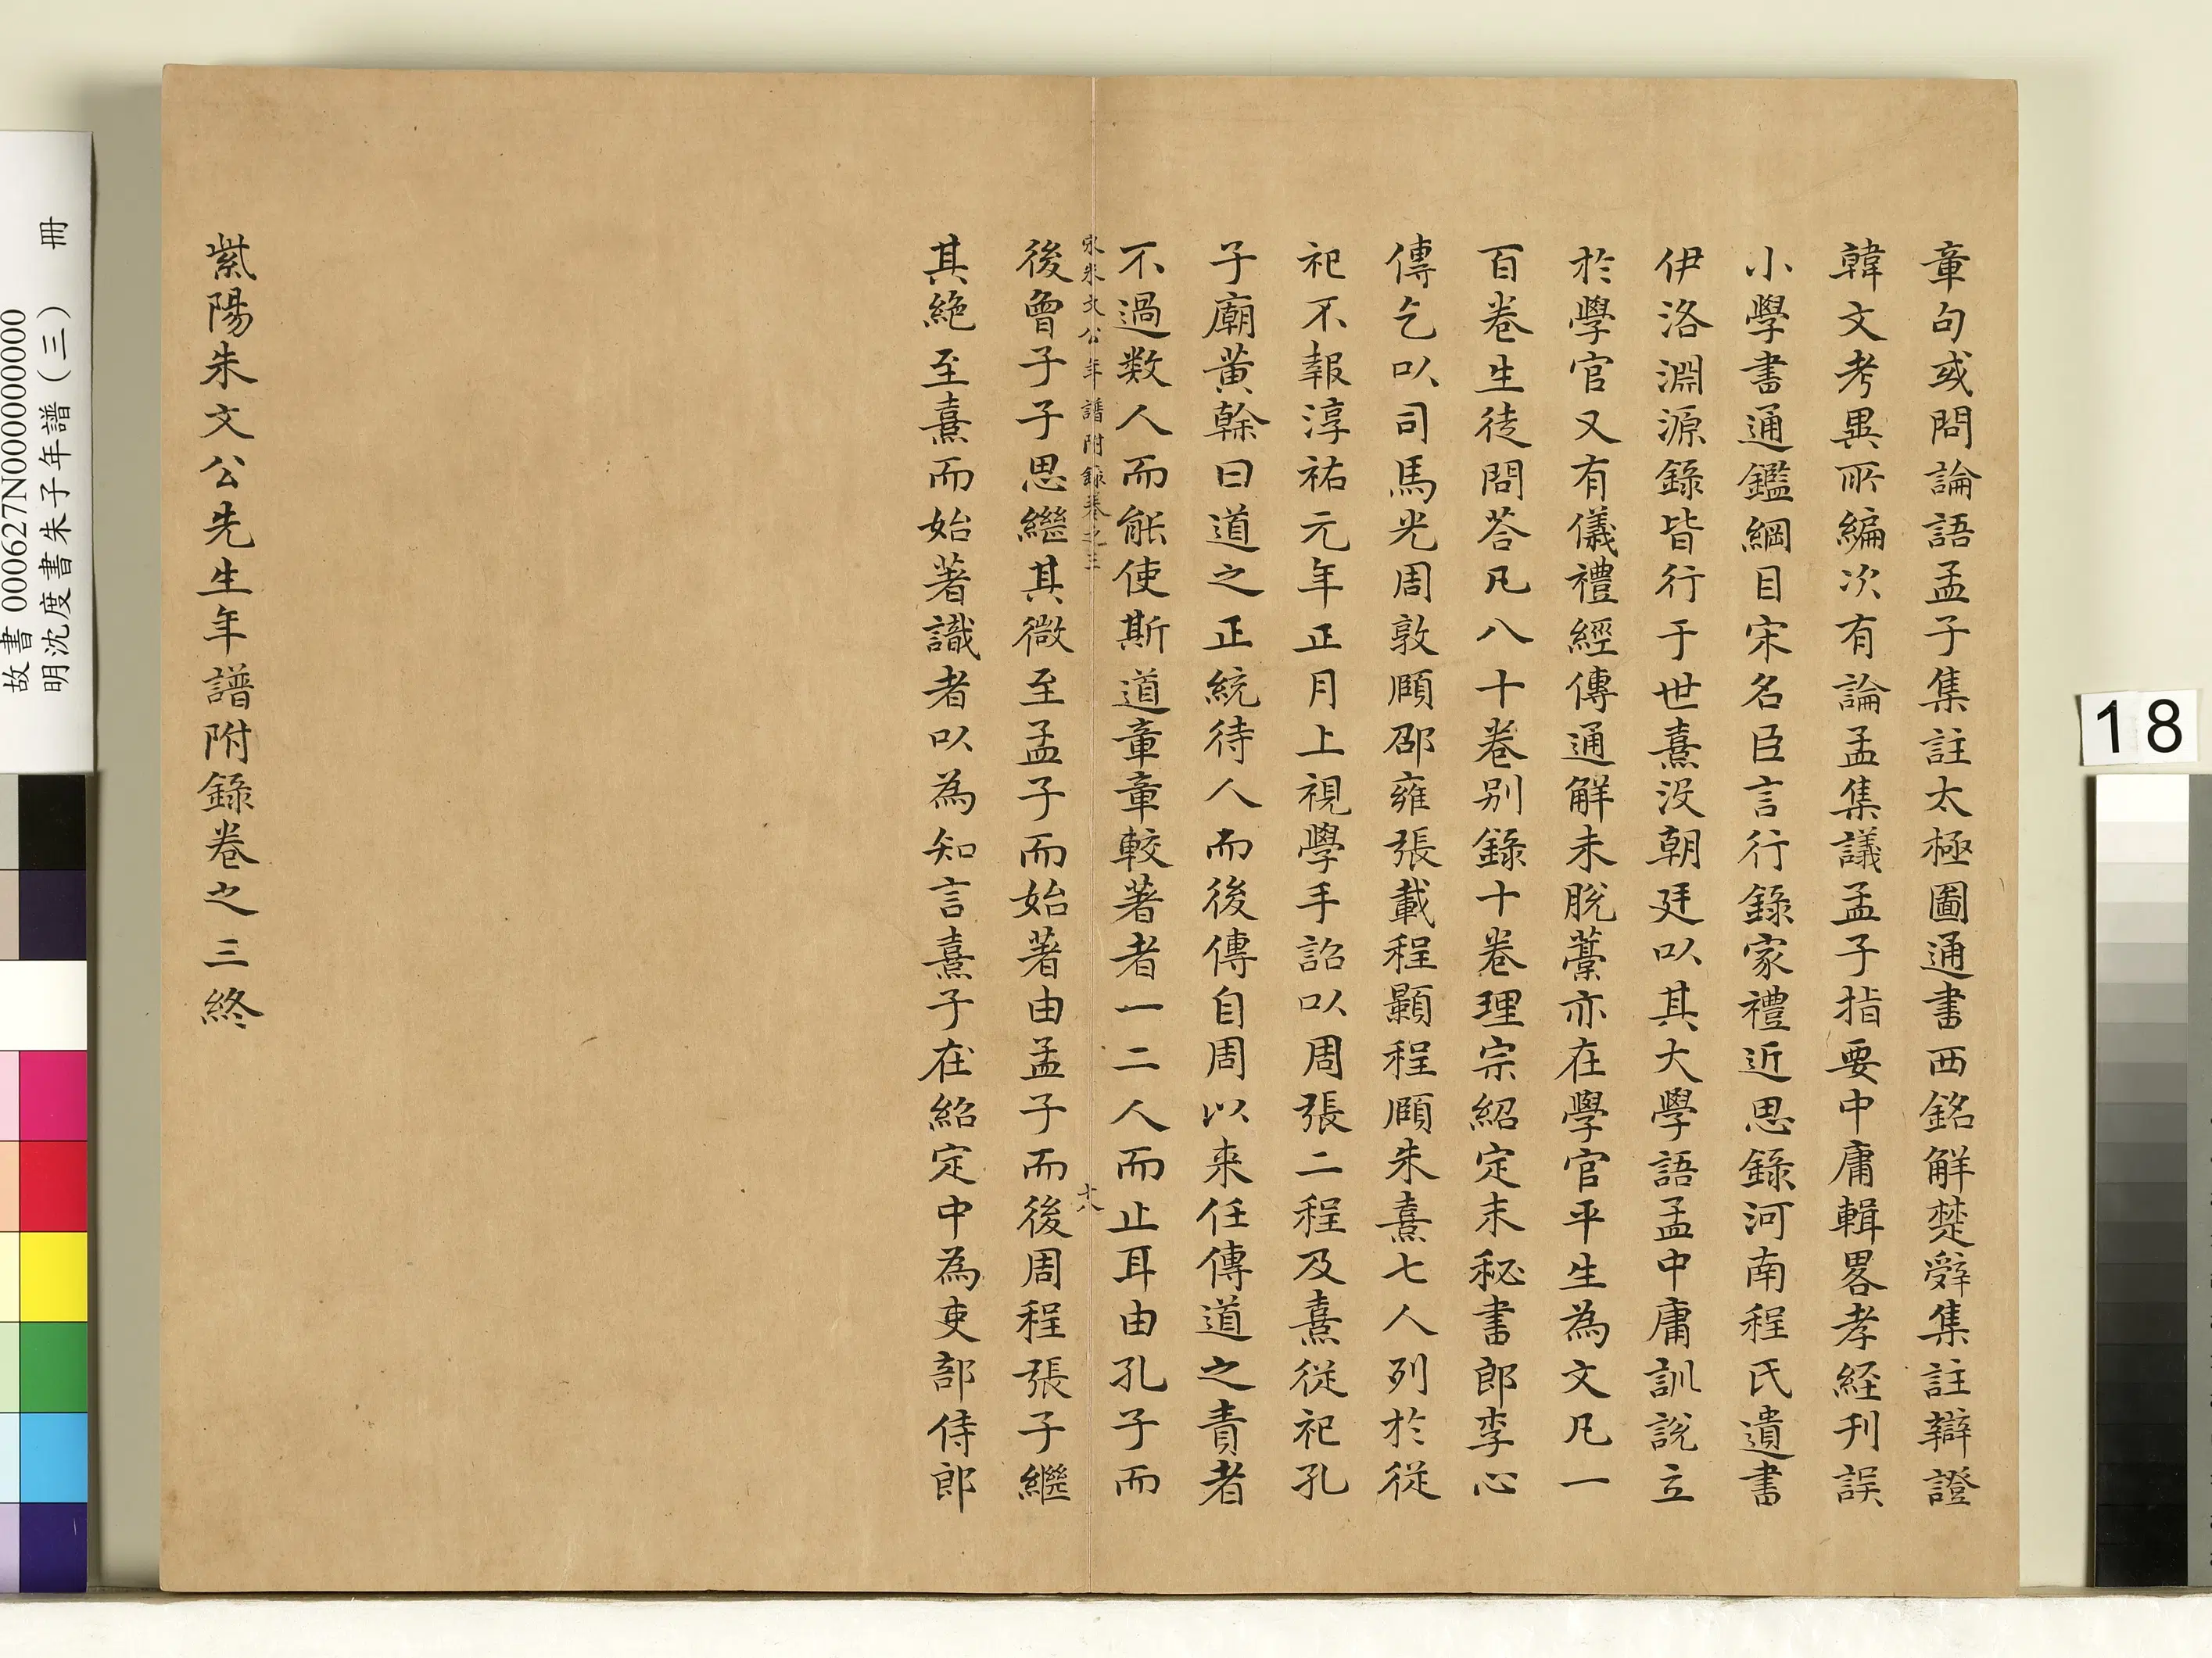 章句或問論語孟子集註太極圖通書西銘解楚辭集註辯證
韓文考異所編次有論孟集議孟子指要中庸輯畧孝経刊誤
小學書通鑑綱目宋名臣言行錄家禮近思錄河南程氏遺書
伊洛淵源錄皆行于世熹没朝廷以其大學語孟中庸訓說立
於學官又有儀禮經傳通解未脫藁亦在學官平生為文凡一
百卷生徒問荅凡八十卷別錄十卷理宗紹定末秘書郎李心
傳乞以司馬光周敦頤邵雍張載程顥程頤朱熹七人列於從
祀不報淳祐元年正月上視學手詔以周張二程及熹從祀孔
子廟黃榦曰道之正統待人而後傳自周以来任傳道之責者
不過数人而能使斯道章章較著者一二人而止耳由孔子而
宋朱文公年譜附錄卷之三
十八
後曾子子思繼其微至孟子而始著由孟子而後周程張子繼
其絶至熹而始著識者以為知言熹子在紹定中為吏部侍郎
紫陽朱文公先生年譜附錄卷之三終
故書 000627N000000000
明沈度書朱子年譜（三） 冊
18